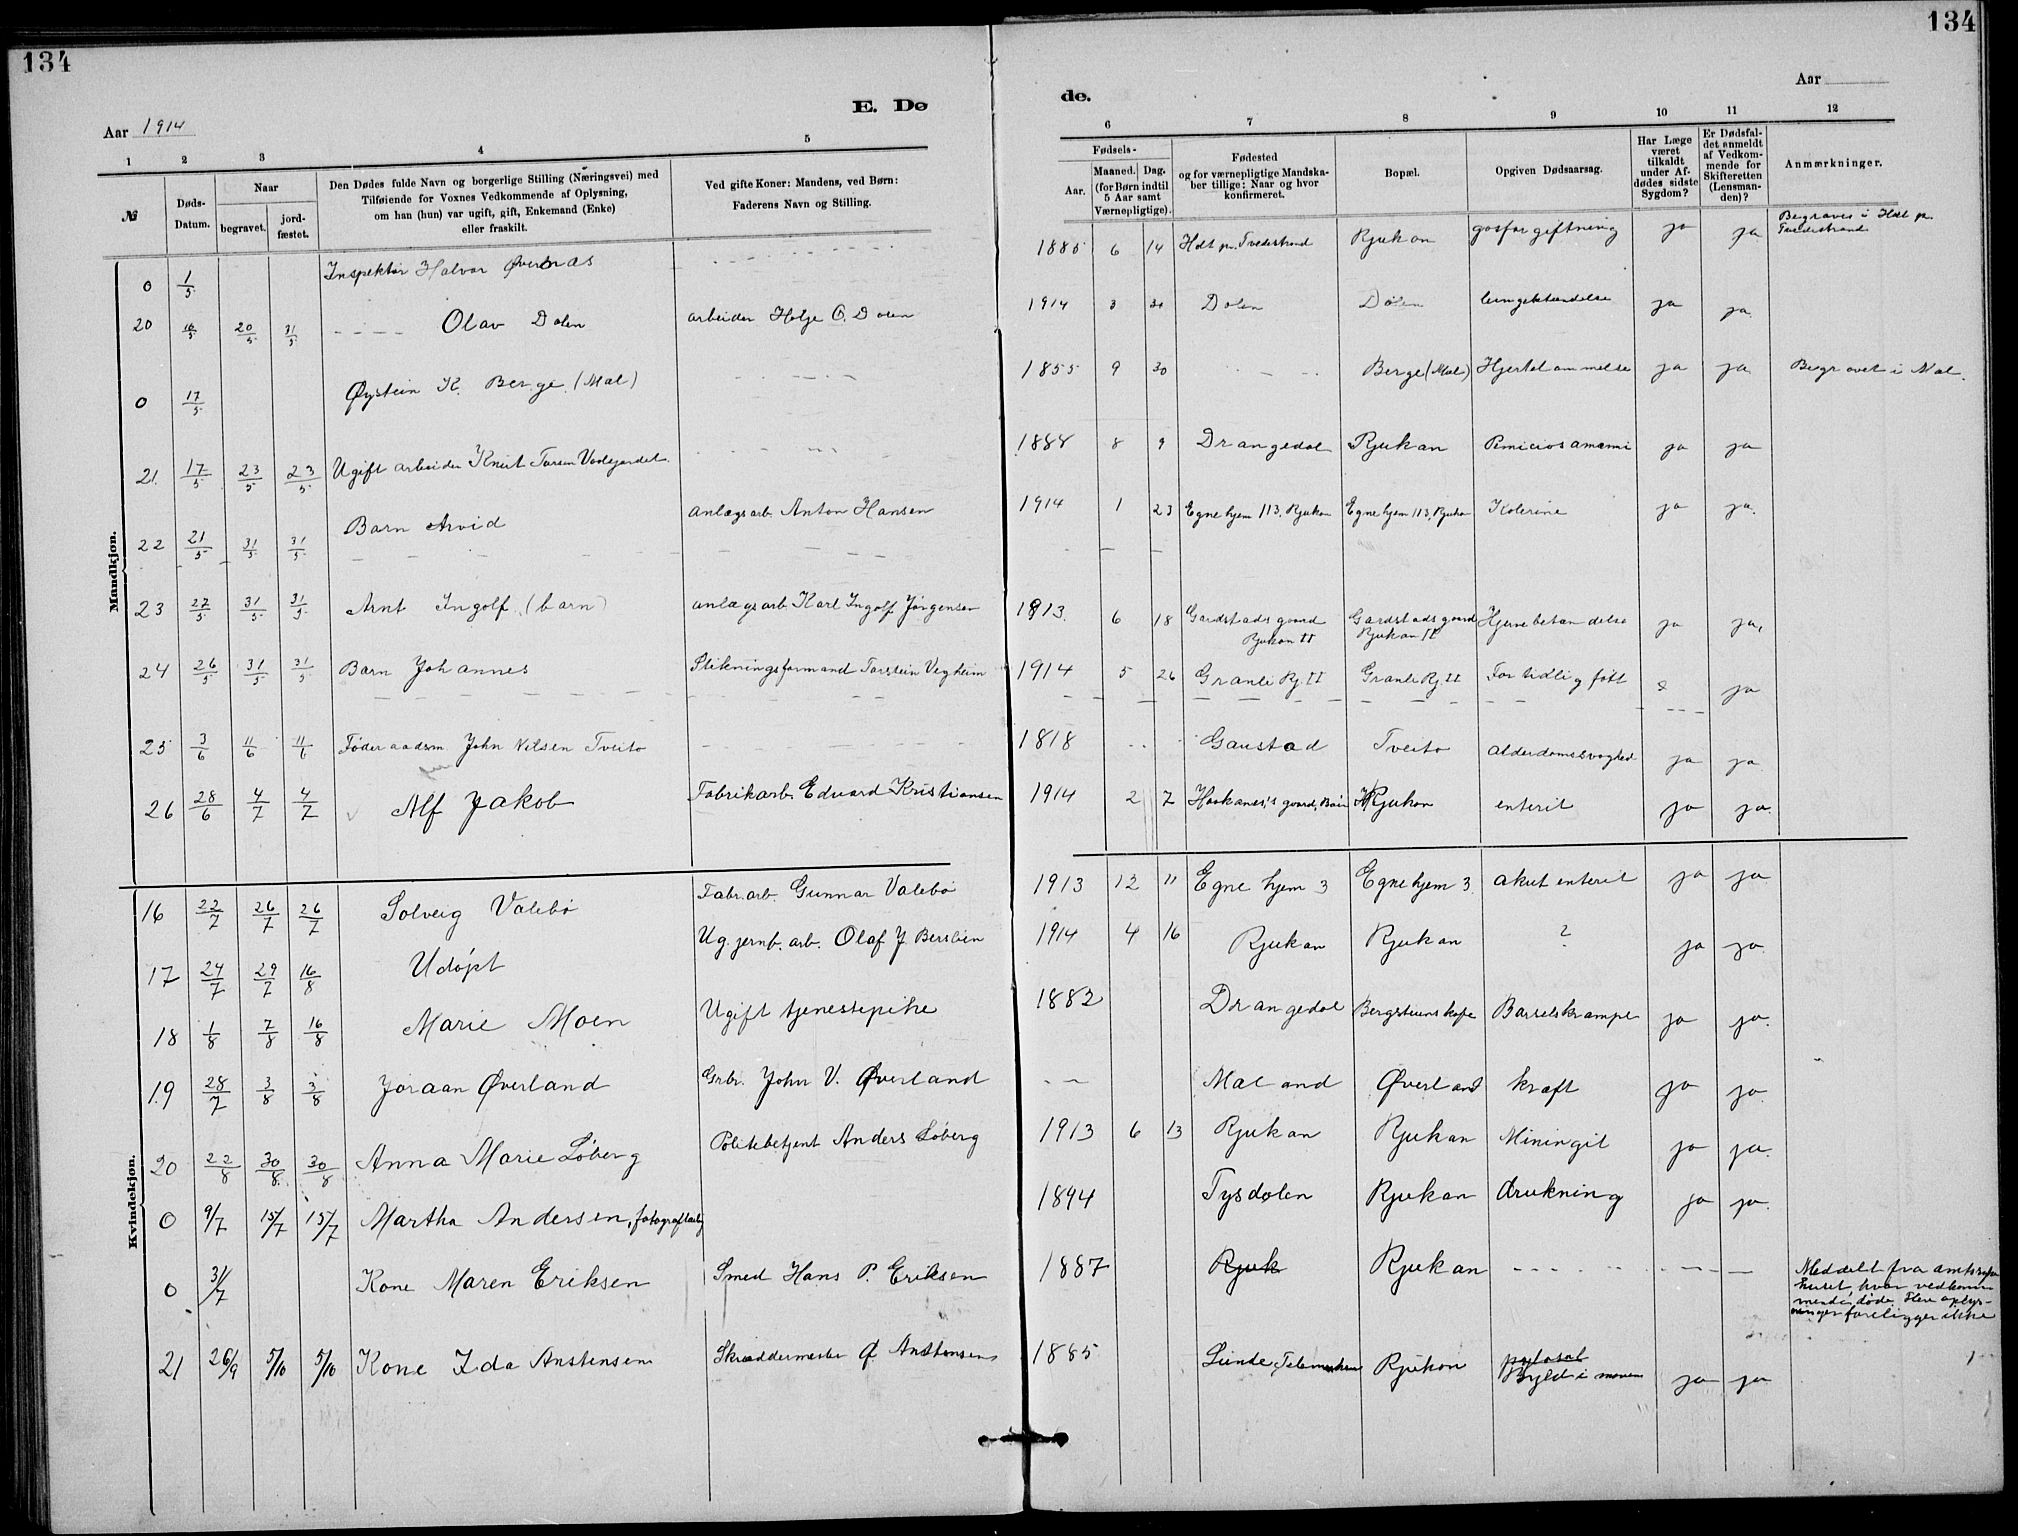 134
134
Aar 1914
E. Dø
de.
Aar
1 2 3 4 5 6 7 8 9 10 11 12
№
Døds-Datum.
Naar
begravet.
jord-fæstet.
Den Dødes fulde Navn og borgerlige Stilling (Næringsvei) med
Tilføiende for Voxnes Vedkommende af Oplysning,
om han (hun) var ugift, gift, Enkemand (Enke)
eller fraskilt.
Ved gifte Koner: Mandens, ved Børn:
Faderens Navn og Stilling.
Fødsels-
Aar.
Maaned. Dag.
(for Børn indtil
5 Aar samt
Værnepligtige).
Fødested
og for værnepligtige Mandska-
ber tillige: Naar og hvor
konfirmeret.
Bopæl.
Opgiven Dødsaarsag.
Har Læge
været
tilkaldt
under Af-
dødes sidste
Sygdom?
Er Dødsfal-
det anmeldt
af Vedkom-
mende for
Skifteretten
(Lensman-
den)?
Anmærkninger.
Mandkjøn.
0 1/5 Inspektør Halvor Øverbræs 1885 6 14 Holt pr. Tvedestrand Rjukan gasforgiftning ja ja Begraves i Holt pr. Tvedestrand
20 16/5 20/5 31/5 Olav Dalen arbeider Helge O. Dalen 1914 3 Dalen Dalen lungebetændelse ja ja.
0 17/5 Øystein K. Berge (Mæl) 1855 9 30 Berge (Mæl) Hjertelammelse ja ja Begravet i Mæl.
21. 17/5 23/5 23/5 Ugift arbeider Knut 1888 8 9 Drangedal Rjukan ja ja
22 21/5 31/5 31/5 Barn Arvid anlægsarb. Anton Hansen 1914 1 23 Egne hjem 113, Rjukan Egne hjem 113, Rjukan Kolerine ja ja.
23 27/5 31/5 31/5 Arnt Ingolf (barn) anlægsarb. Karl Ingolf Jørgensen 1913. 6 18 Gardstadsgaard Rjukan II Gardstadsgaard Rjukan II Hjernebetændelse ja ja,
24 26/5 31/5 31/5 Barn Johannes Stikningsformand Torstein Vegheim 1914 5 26 Granli Rj. II Granli Rj. II For tidlig født ja
25 3/6 11/6 11/6 Føderaadsm. John Nilsen Tveito 1818 Gaustad Tveito alderdomssvaghed ja ja
26 28/6 4/7 4/7 Alf Jakob Fabrikarb. Edvard Kristiansen 1914 2 7 Haakanes's gaard, Rjukan enterit ja ja.
Kvindekjøn.
16 22/7 26/7 26/7 Solveig Valebø Fabr.arb. Gunnar Valebø 1913 12 11 Egne hjem 3 Egne hjem 3. akut enterit ja ja.
17 24/7 29/7 16/8 Udøpt Ug. jernb. arb. Olaf J. 1914 4 16 Rjukan Rjukan ? ja ja.
18 1/8 7/8 16/8 Marie Moen Ugift tjenestepike 1882 Drangedal Barselskrampe ja ja.
19 28/7 3/8 3/8 Joraan Øverland Grbr. John V. Øverland Øverland kræft ja ja.
20 22/8 30/8 30/8 Anna Marie Løberg Politibetjent Anders Løberg 1913 6 13 Rjukan Rjukan Miningit ja ja.
0 9/7 15/7 15/7 Martha Andersen, 1894 Tysdalen Rjukan drukning ja ja.
0 31/7 Kone Maren Eriksen Smed Hans P. Eriksen 1887 Rjuk Rjukan Meddelt fra amtssyke
huset, hvor vedkom-
mende døde. Flere oplys-
ninger foreligger ikke
21 26/9 5/10 5/10 Kone Ida Anstensen Skræddermester Ø Anstensen 1885 Lunde, Telemarken Rjukan Byld i maven ja ja